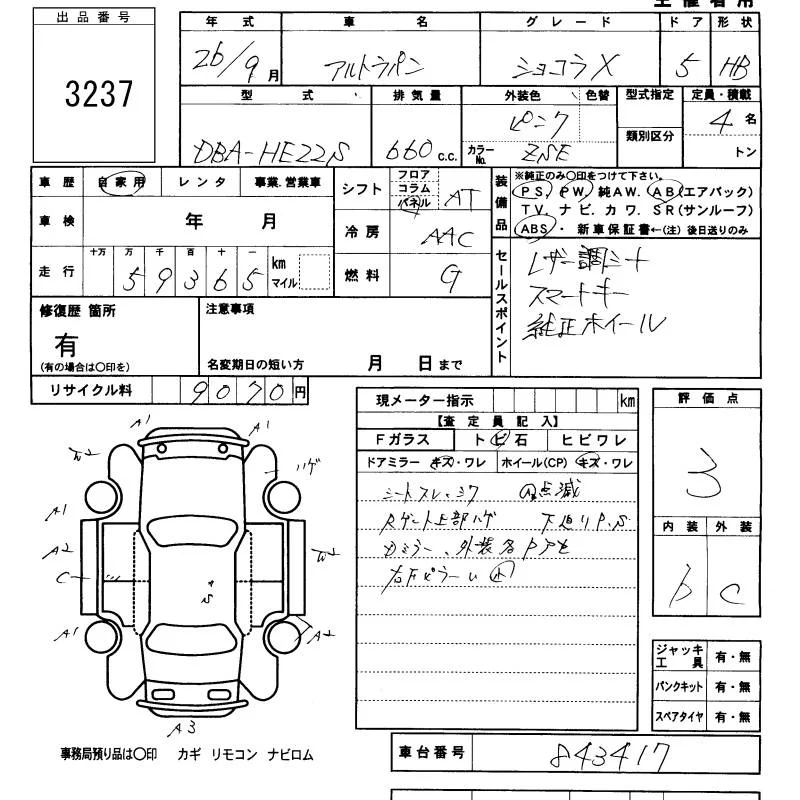 出品番号
3237
年式 車名 グレード ドア 形状
26/9月 アルトラパン ショコラX 5 HB
型式 排気量 外装色 色替 型式指定 定員・積載
DBA-HE22S 660 c.c. ピンク 類別区分 4名
カラーNo. ZSE トン
車歴 自家用 レンタ 事業.営業車
シフト フロア コラム パネル AT
車検 年 月
冷房 AAC
走行 十万 万 千 百 十 一
59365 km マイル
燃料 G
装備品 ※純正のみ〇印をつけて下さい。
PS, PW, 純AW. AB(エアバック)
TV. ナビ. カワ. SR(サンルーフ)
ABS・ 新車保証書←(注) 後日送りのみ
セールスポイント
レザー調シート
スマートキー
純正ホイール
修復歴 箇所
有
(有の場合は〇印を)
注意事項
名変期日の短い方 月 日まで
リサイクル料 9070円
現メーター指示 km
【査定員記入】
Fガラス トビ石 ヒビワレ
ドアミラー キズ・ワレ ホイール(CP) キズ・ワレ
点減
下廻りP.S
評価点
3
内装 外装
b C
ジャッキ工具 有・無
パンクキット 有・無
スペアタイヤ 有・無
A1 A1
ハゲ
A1
A2
C
A1 A2
A3
事務局預り品は〇印 カギ リモコン ナビロム
車台番号 843417